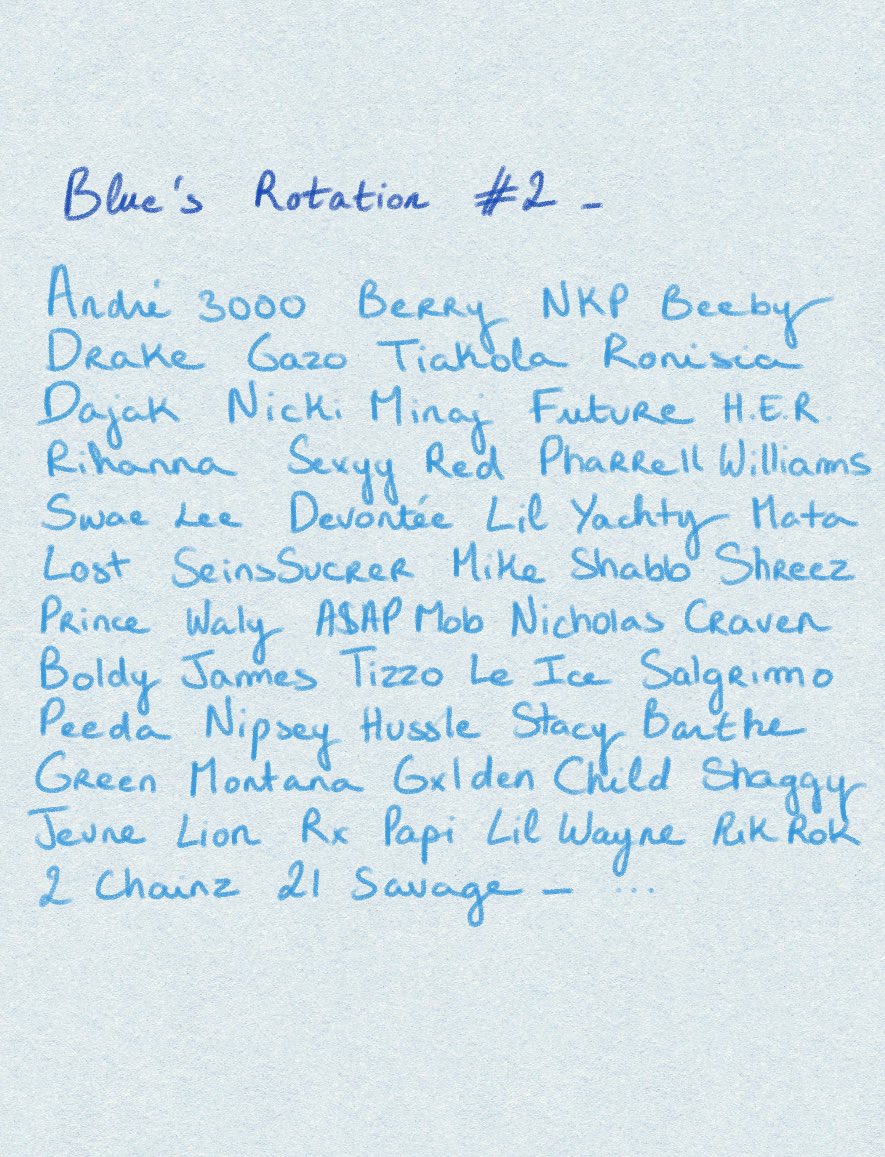 Blue's Rotation #2 -
André 3000 Berry NKP Beeby
Drake Gazo Tiakola Ronisia
Dajak Nicki Minaj Future H.E.R.
Rihanna Sexyy Red Pharrell Williams
Swae Lee Devontée Lil Yachty Mata
Lost SeinsSucrer Mike Shabb Shreez
Prince Waly A$AP Mob Nicholas Craven
Boldy James Tizzo Le Ice Salgrimo
Peeda Nipsey Hussle Stacy Barthe
Green Montana Gxlden Child Shaggy
Jeune Lion Rx Papi Lil Wayne Rik Rok
2 Chainz 21 Savage - ...